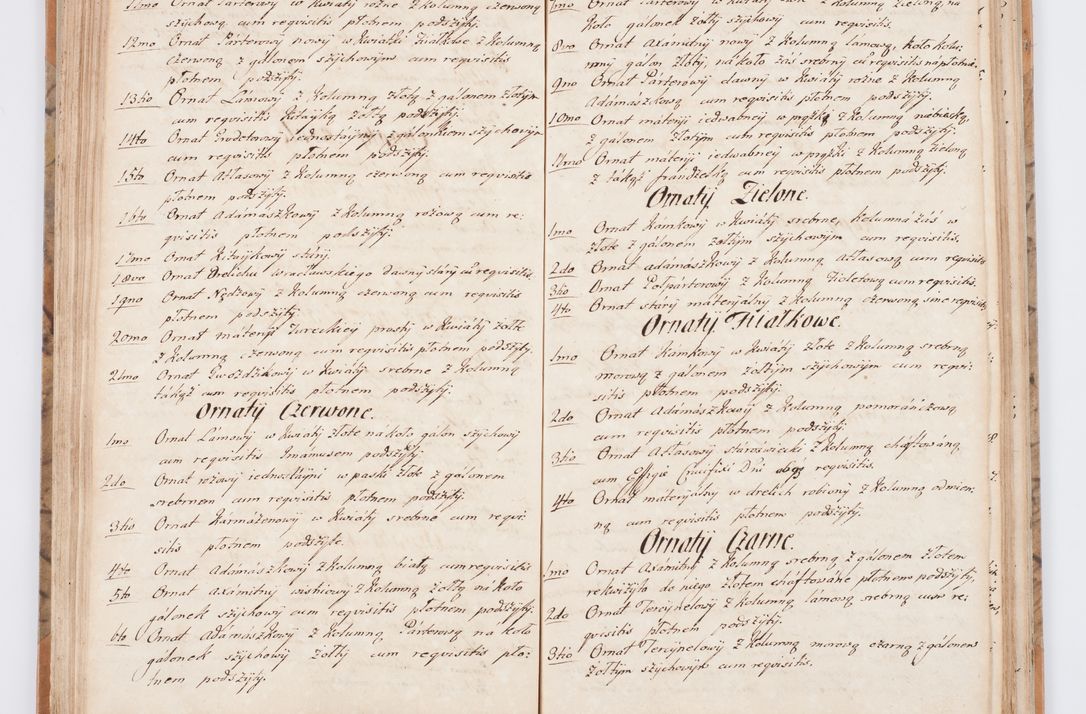 11mo Ornat Parterowy w kwiaty rożne z kolumną czerwoną
szychową cum reqvisitis płotnem podszyty.
12mo Ornat Parterowy nowy w kwiatki fiałkowe z kolumną
czerwoną z galonem szychowym cum reqvisitis
płotnem podszyty.
13tio Ornat Lámowy z kolumną złotą z galonem złotym
cum reqvisitis kitayką żołtą podszyty.
14to Ornat jednostayny z galonkiem szychowym
cum reqvisitis płotnem podszyty.
15to Ornat Atłasowy z kolumną czerwoną cum reqvisitis
płotnem podszyty.
16to Ornat Adamaszkowy z kolumną rożową cum re-
qvisitis płotnem podszyty.
17mo Ornat Kitaykowy stary.
18vo Ornat Drelichu wracławskiego dawny stary cũ reqvisitis
19no Ornat Nędzowy z kolumną czerwoną cum reqvisitis
płotnem podszyty.
20mo Ornat materyi tureckiey prosty w kwiaty żołte
z kolumną czerwoną cum reqvisitis płotnem podszyty.
21mo Ornat Gwozdzikowy w kwiaty srebrne z kolumną
takąż cum reqvisitis płotnem podszyty.
Ornaty Czerwone.
1mo Ornat Lámowy w kwiaty złote nákoło galon szychowy
cum reqvisitis podszyty.
2do Ornat rożowy iednostayni w paski złote z gálonem
srebrnem cum reqvisitis płotnem podszyty.
3tio Ornat Kármazenowy w kwiaty srebrne cum reqvi-
sitis płotnem podszyte.
4to Ornat Adámaszkowy z kolumną białą cum reqvisitis
5to Ornat Axámitny wisniowy z kolumną żołtą na koło
gálonek szychowy cum reqvisitis płotnem podszyty.
6to Ornat Adamaszkowy z kolumną Párterową na koło
gálonek szychowy żołty cum reqvisitis pło-
tnem podszyty.
koło gálonek żołty szychowy cum reqvisitis.
8vo Ornat Axámitny nowy z kolumną lámową, koło kolu-
mny galon złoty, nákoło zas srebrny cũ reqvisitis
9no Ornat Parterowy dawny w kwiaty rożne z kolumną
Adámászkową cum reqvisitis płotnem podszyty.
10mo Ornat materyi iedwabney w prążki z kolumną niebieską,
z gálonem złotym cum reqvisitis płotnem podszyty.
11mo Ornat máteryi iedwabney w prążki z kolumną zieloną
z tákąż frandzelką cum reqvisitis płotnem podszyty.
Ornaty Zielone.
1mo Ornat Kámkowy w kwiaty srebrne, kolumná zás w
złote z gálonem żołtym szychowym cum reqvisitis.
2do Ornat adámászkowy z kolumną Atłasową cum reqvisitis
3tio Ornat Pułpárterowy z kolumną Fioletową cum reqvisitis.
4to Ornat stáry máteryálny z kolumną czerwoną sine reqvisitis
Ornaty Fiałkowe.
1mo Ornat Kámkowy w kwiaty złote z kolumną srebrną
morową z gálonem żołtym szychowym cum reqvi-
sitis płotnem podszyty.
2do Ornat Adámászkowy z kolumną pomoránczową
cum reqvisitis płotnem podszyty.
3tio Ornat Atłasowy stároswiecki z kolumną chaftowáną
cum Effigie Crucifixi Dni absq reqvisitis.
4to Ornat materyálny w drelich robiony z kolumną odmien-
ną cum reqvisitis płotnem podszyty.
Ornaty Czarne.
1mo Ornat Axámitny z kolumną srebrną, z gálonem złotem
rekwizyta do niego złotem chaftowane płotnem podszyty,
2do Ornat Tercynelowy z kolumną lámową srebrną cum re-
qvisitis płotnem podszyty.
3tio Ornat Tercynelowy z kolumną morową czarną z gálonem
żołtym szychowym cum reqvisitis.